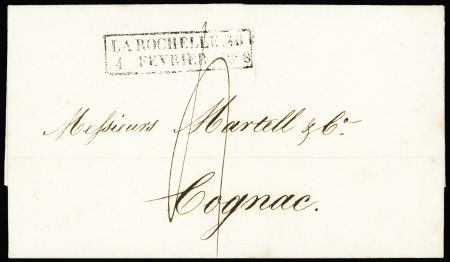 LA ROCHELLE. 46
4 FEVRIER
Messieurs Martell & Co.
Cognac.